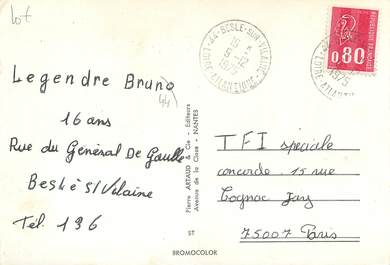 lot
44 - BESLE-SUR-VILAINE
5-12
1975
LOIRE-ATLANTIQUE
0,80
1975
Legendre Bruno
(44)
16 ans
Rue du Général De Gaulle
Beslé s/Vilaine
Tél. 196
Pierre ARTAUD & Cie - Editeurs
Avenue de la Close - NANTES
ST
BROMOCOLOR
TFI spéciale
concorde 15 rue
Cognac Jay
75007 Paris